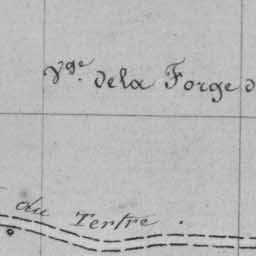 Vge. de la Forge d
du Tertre.